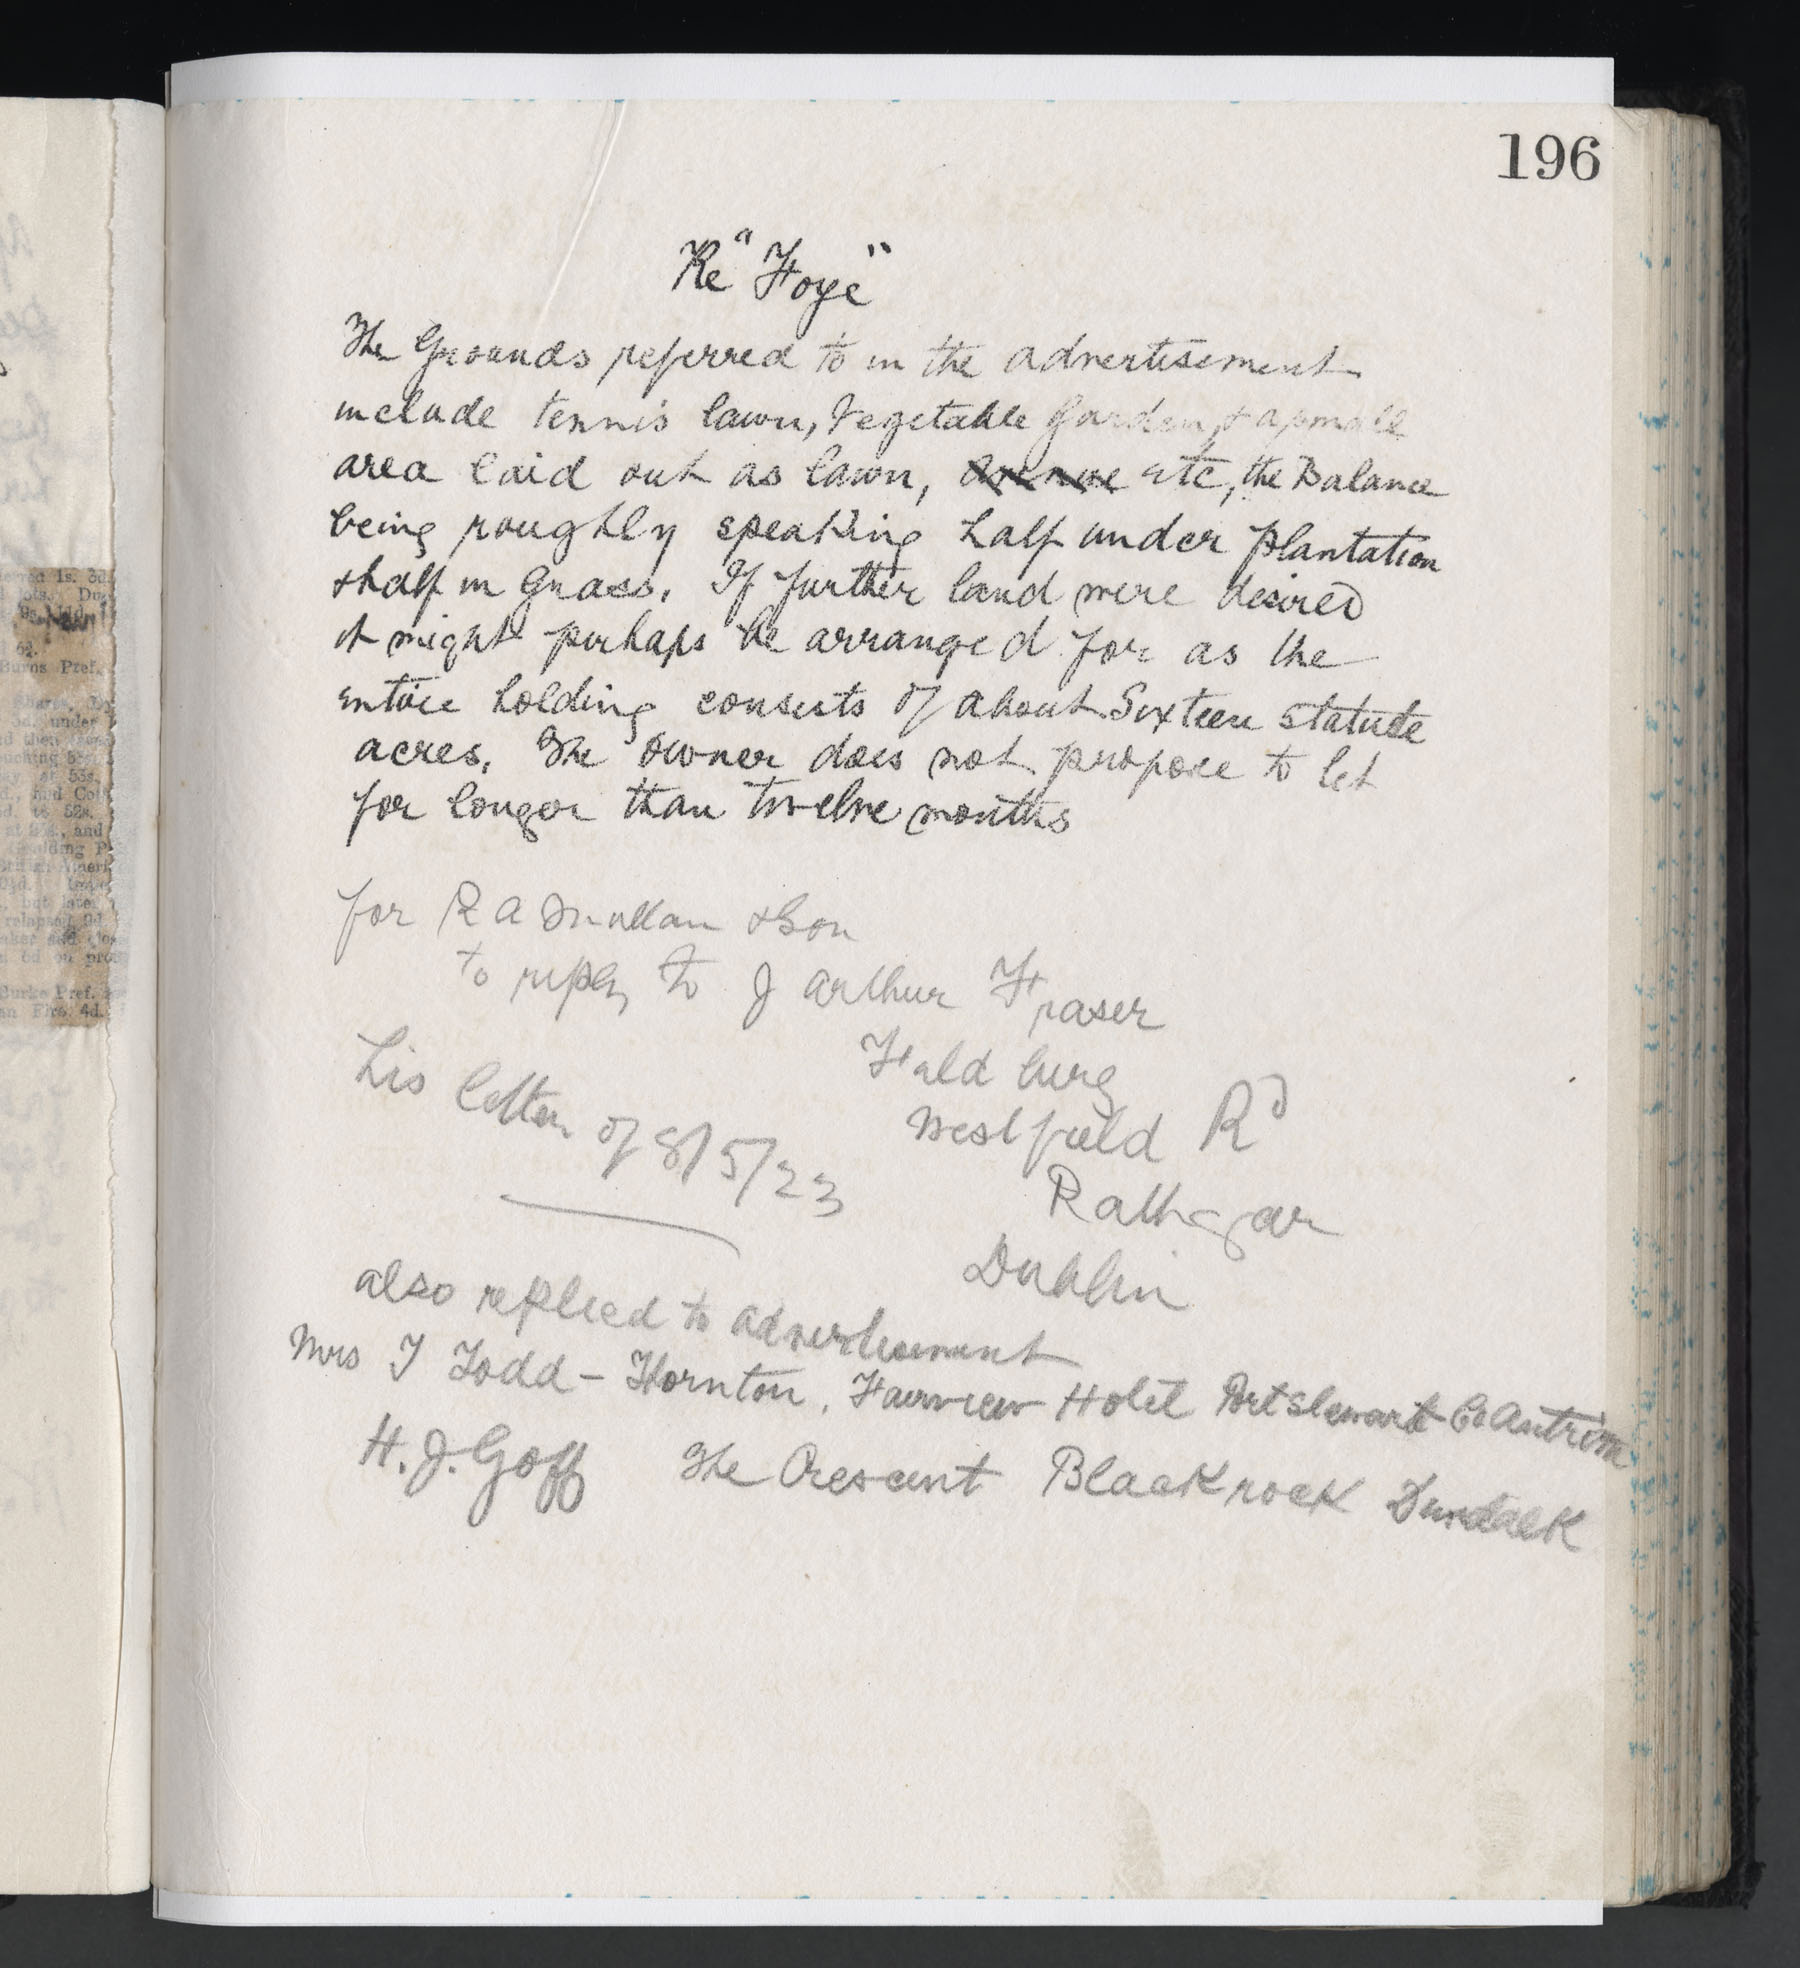 196
Re "Foye"
The Grounds referred to in the advertisement
include tennis lawn, Vegetable Garden, & a small
area laid out as lawn, avenue etc, the Balance
being roughly speaking half under plantation
& half in Grass. If further land were desired
it might perhaps be arranged for as the
entire holding consists of about Sixteen statute
acres. The owner does not propose to let
for longer than twelve months
for R A Mullan & Son
to reply to J Arthur Fraser
his letter of 8/5/23
Westfield Rd
Rathgar
Dublin
also replied to advertisement
Mrs J Todd - Thornton, Fairview Hotel Portstewart Co Antrim
H. J. Goff The Crescent Blackrock Dundalk
1s. 3d.
Burns Pref.
Shares,
5d. under
d then
at 53s.
to 52s.
and
British Ameri
but later
relapsed
6d on
Burke Pref.
4d.